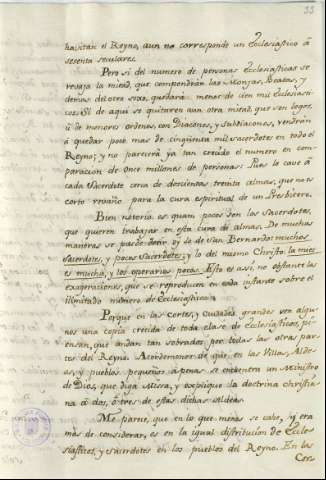 33
habitan el Reyno, aun no corresponde un Ecclesiastico â
sesenta seculares.
Pero si del numero de personas Ecclesiasticas se
rebaja la mitad, que compondràn las Monjas, Beatas, y
demas del otro sexo, quedarà menor de cien mil Ecclesiasti-
cos. Si de aqui se quitaren aun otra mitad, que son legos,
ù de menores ordenes, con Diaconos, y Subdiaconos, vendràn
à quedar poco mas de cinquenta mil Sacerdotes en todo el
Reyno; y no parecerà ya tan crecido el numero en com-
paracion de once millones de personas: Pues le cave à
cada Sacerdote cerca de doscientas treinta almas, que no es
corto rebaño para la cura espiritual de un Presbitero.
Bien notorio es quam pocos son los Sacerdotes,
que quieren trabajar en esta cura de almas. De muchas
maneras se puede decir oy lo de San Bernardo: muchos
Sacerdotes, y pocos Sacerdotes; y lo del mismo Christo: la mies
es mucha, y los operarios pocos. Esto es asi, no obstante las
exageraciones, que se reproducen en cada instante sobre el
ilimitado numero de Ecclesiasticos.
Porque en las Cortes, y Ciudades grandes ven algu-
nos una copia crecida de toda clase de Ecclesiasticos, pi-
ensan, que andan tan sobrados por todas las otras par-
tes del Reyno. A cordemonos de que en las Villas, Alde-
as, y pueblos pequeños apenas se encuentra un Ministro
de Dios, que diga Missa, y explique la doctrina christia-
na à dos, ò tres de estas dichas Aldeas.
Me parece, que en lo que menos se cabe, y era
mas de considerar, es en la igual distribucion de Eccle-
siasticos, y Sacerdotes en los pueblos del Reyno. En las
Cor-